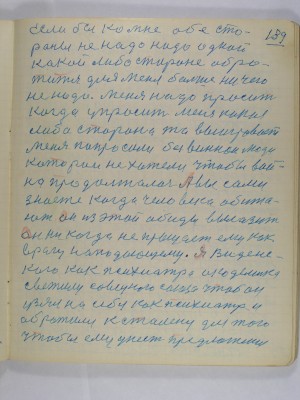 159
если бы ко мне обе сто-
роны не надо надо одной
какой либо стороне обра-
тится для меня больше ничего
не надо. меня надо просить
когда упросит меня какая
либо сторона та выигрывает
меня попросили бы винном
которым не хотели чтобы вой-
на продолжалас А вы сами
знаете когда человека обижа-
ют он из этой обиды
он никогда не прощает ему как
врагу нападающему. Я Виденс-
кого как психиатра академика
светилу советского союза чтобы он
взял на себя как психиатр и
обратился к сталину для того
чтобы ему учесть предложения